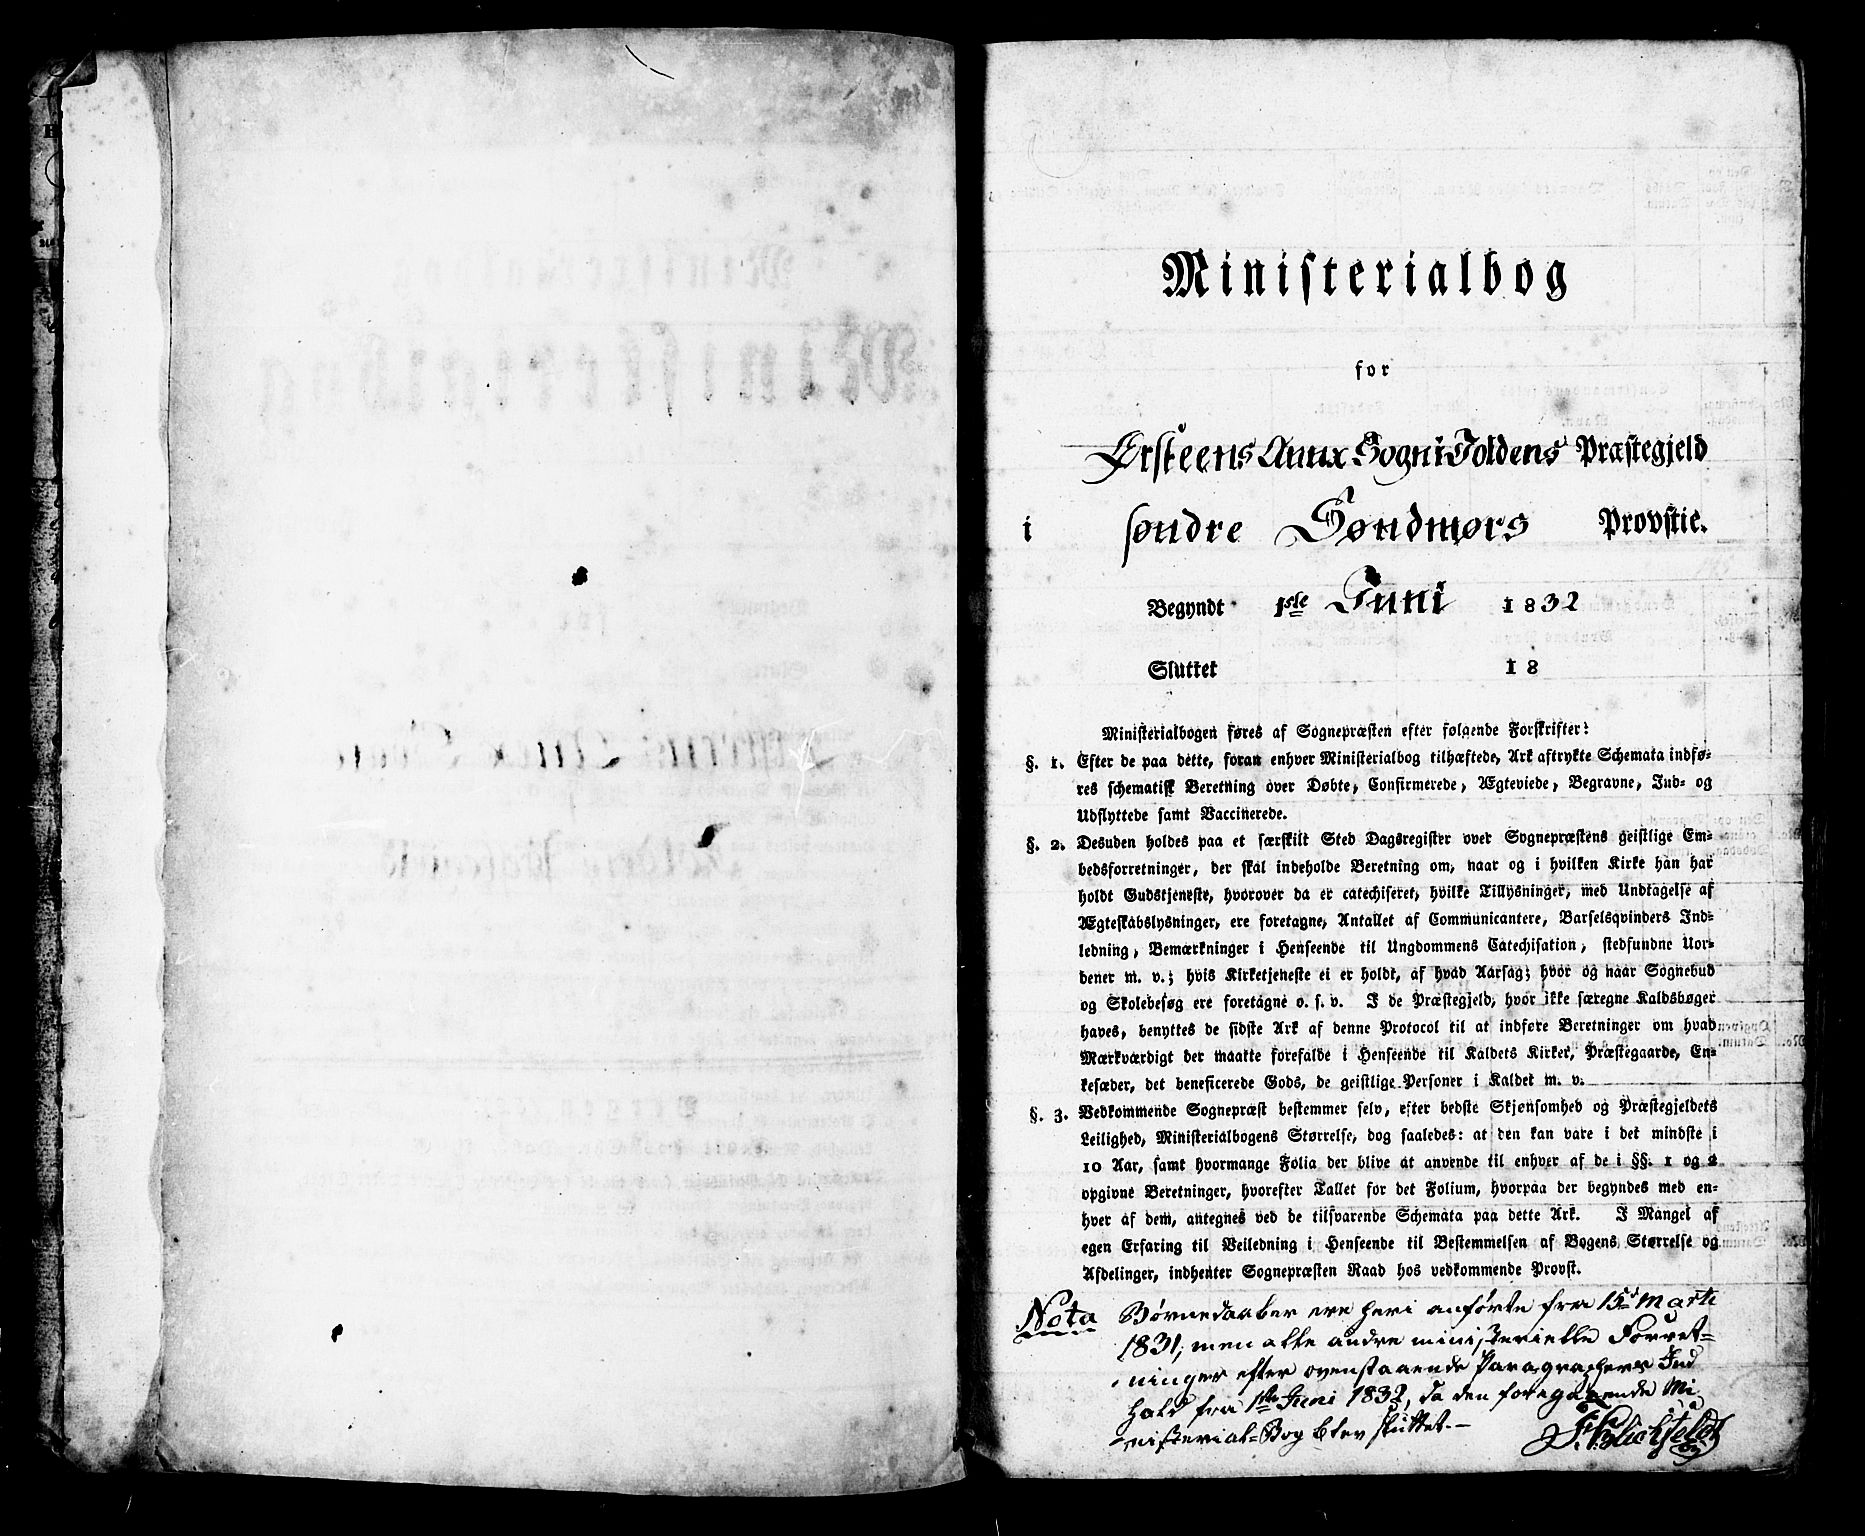 Ministerialbog
for
Ørsteens Annx Sogn i Voldens Præstegjeld
i søndre Søndmørs Provstie.
Begyndt 1ste Juni 1832
Sluttet 18
Ministerialbogen føres af Sognepræsten efter følgende Forskrifter:
§. 1. Efter de paa dette, foran enhver Ministerialbog tilhæftede, Ark aftrykte Schemata indfø-
res schematisk Beretning over Døbte, Confirmerede, Ægteviede, Begravne, Ind- og
Udflyttede samt Vaccinerede.
§. 2. Desuden holdes paa et særskilt Sted Dagsregister over Sognepræstens geistlige Em-
bedsforretninger, der skal indeholde Beretning om, naar og i hvilken Kirke han har
holdt Gudstjeneste, hvorover da er catechiseret, hvilke Tillysninger, med Undtagelse af
Ægteskabslysninger, ere foretagne, Antallet af Communicantere, Barselqvinders Ind-
ledning, Bemærkninger i Henseende til Ungdommens Catechisation, stedfundne Uor-
dener m. v.; hvis Kirketjeneste ei er holdt, af hvad Aarsag; hvor og naar Sognebud
og Skolebesøg ere foretagne o. s. v. I de Præstegjeld, hvor ikke særegne Kaldsbøger
haves, benyttes de sidste Ark af denne Protocol til at indføre Beretninger om hvad
Mærkværdigt der maatte forefalde i Henseende til Kaldets Kirker, Præstegaarde, En-
kesæder, det beneficerede Gods, de geistlige Personer i Kaldet m. v.
§. 3. Vedkommende Sognepræst bestemmer selv, efter bedste Skjønsomhed og Præstegjeldets
Leilighed, Ministerialbogens Størrelse, dog saaledes: at den kan vare i det mindste i
10 Aar, samt hvormange Folia der blive at anvende til enhver af de i §§. 1 og 2
opgivne Beretninger, hvorefter Tallet for det Folium, hvorpaa der begyndes med en-
hver af dem, antegnes ved de tilsvarende Schemata paa dette Ark. I Mangel af
egen Erfaring til Veiledning i Henseende til Bestemmelsen af Bogens Størrelse og
Afdelinger, indhenter Sognepræsten Raad hos vedkommende Provst.
Nota Børnedaaber ere heri anførte fra 15d Marti
1831, men alle andre ministerielle Forret-
ninger efter ovenstaaende Paragraphers Ind
hold fra 1ste Juni 1832, da den foregaaende Mi
nisterial-Bog blev sluttet.-